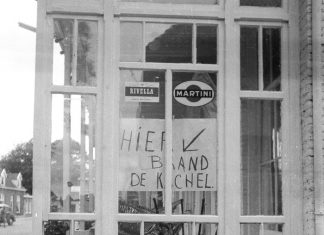 RIVELLA
MARTINI
HIER
BRAND
DE KACHEL.